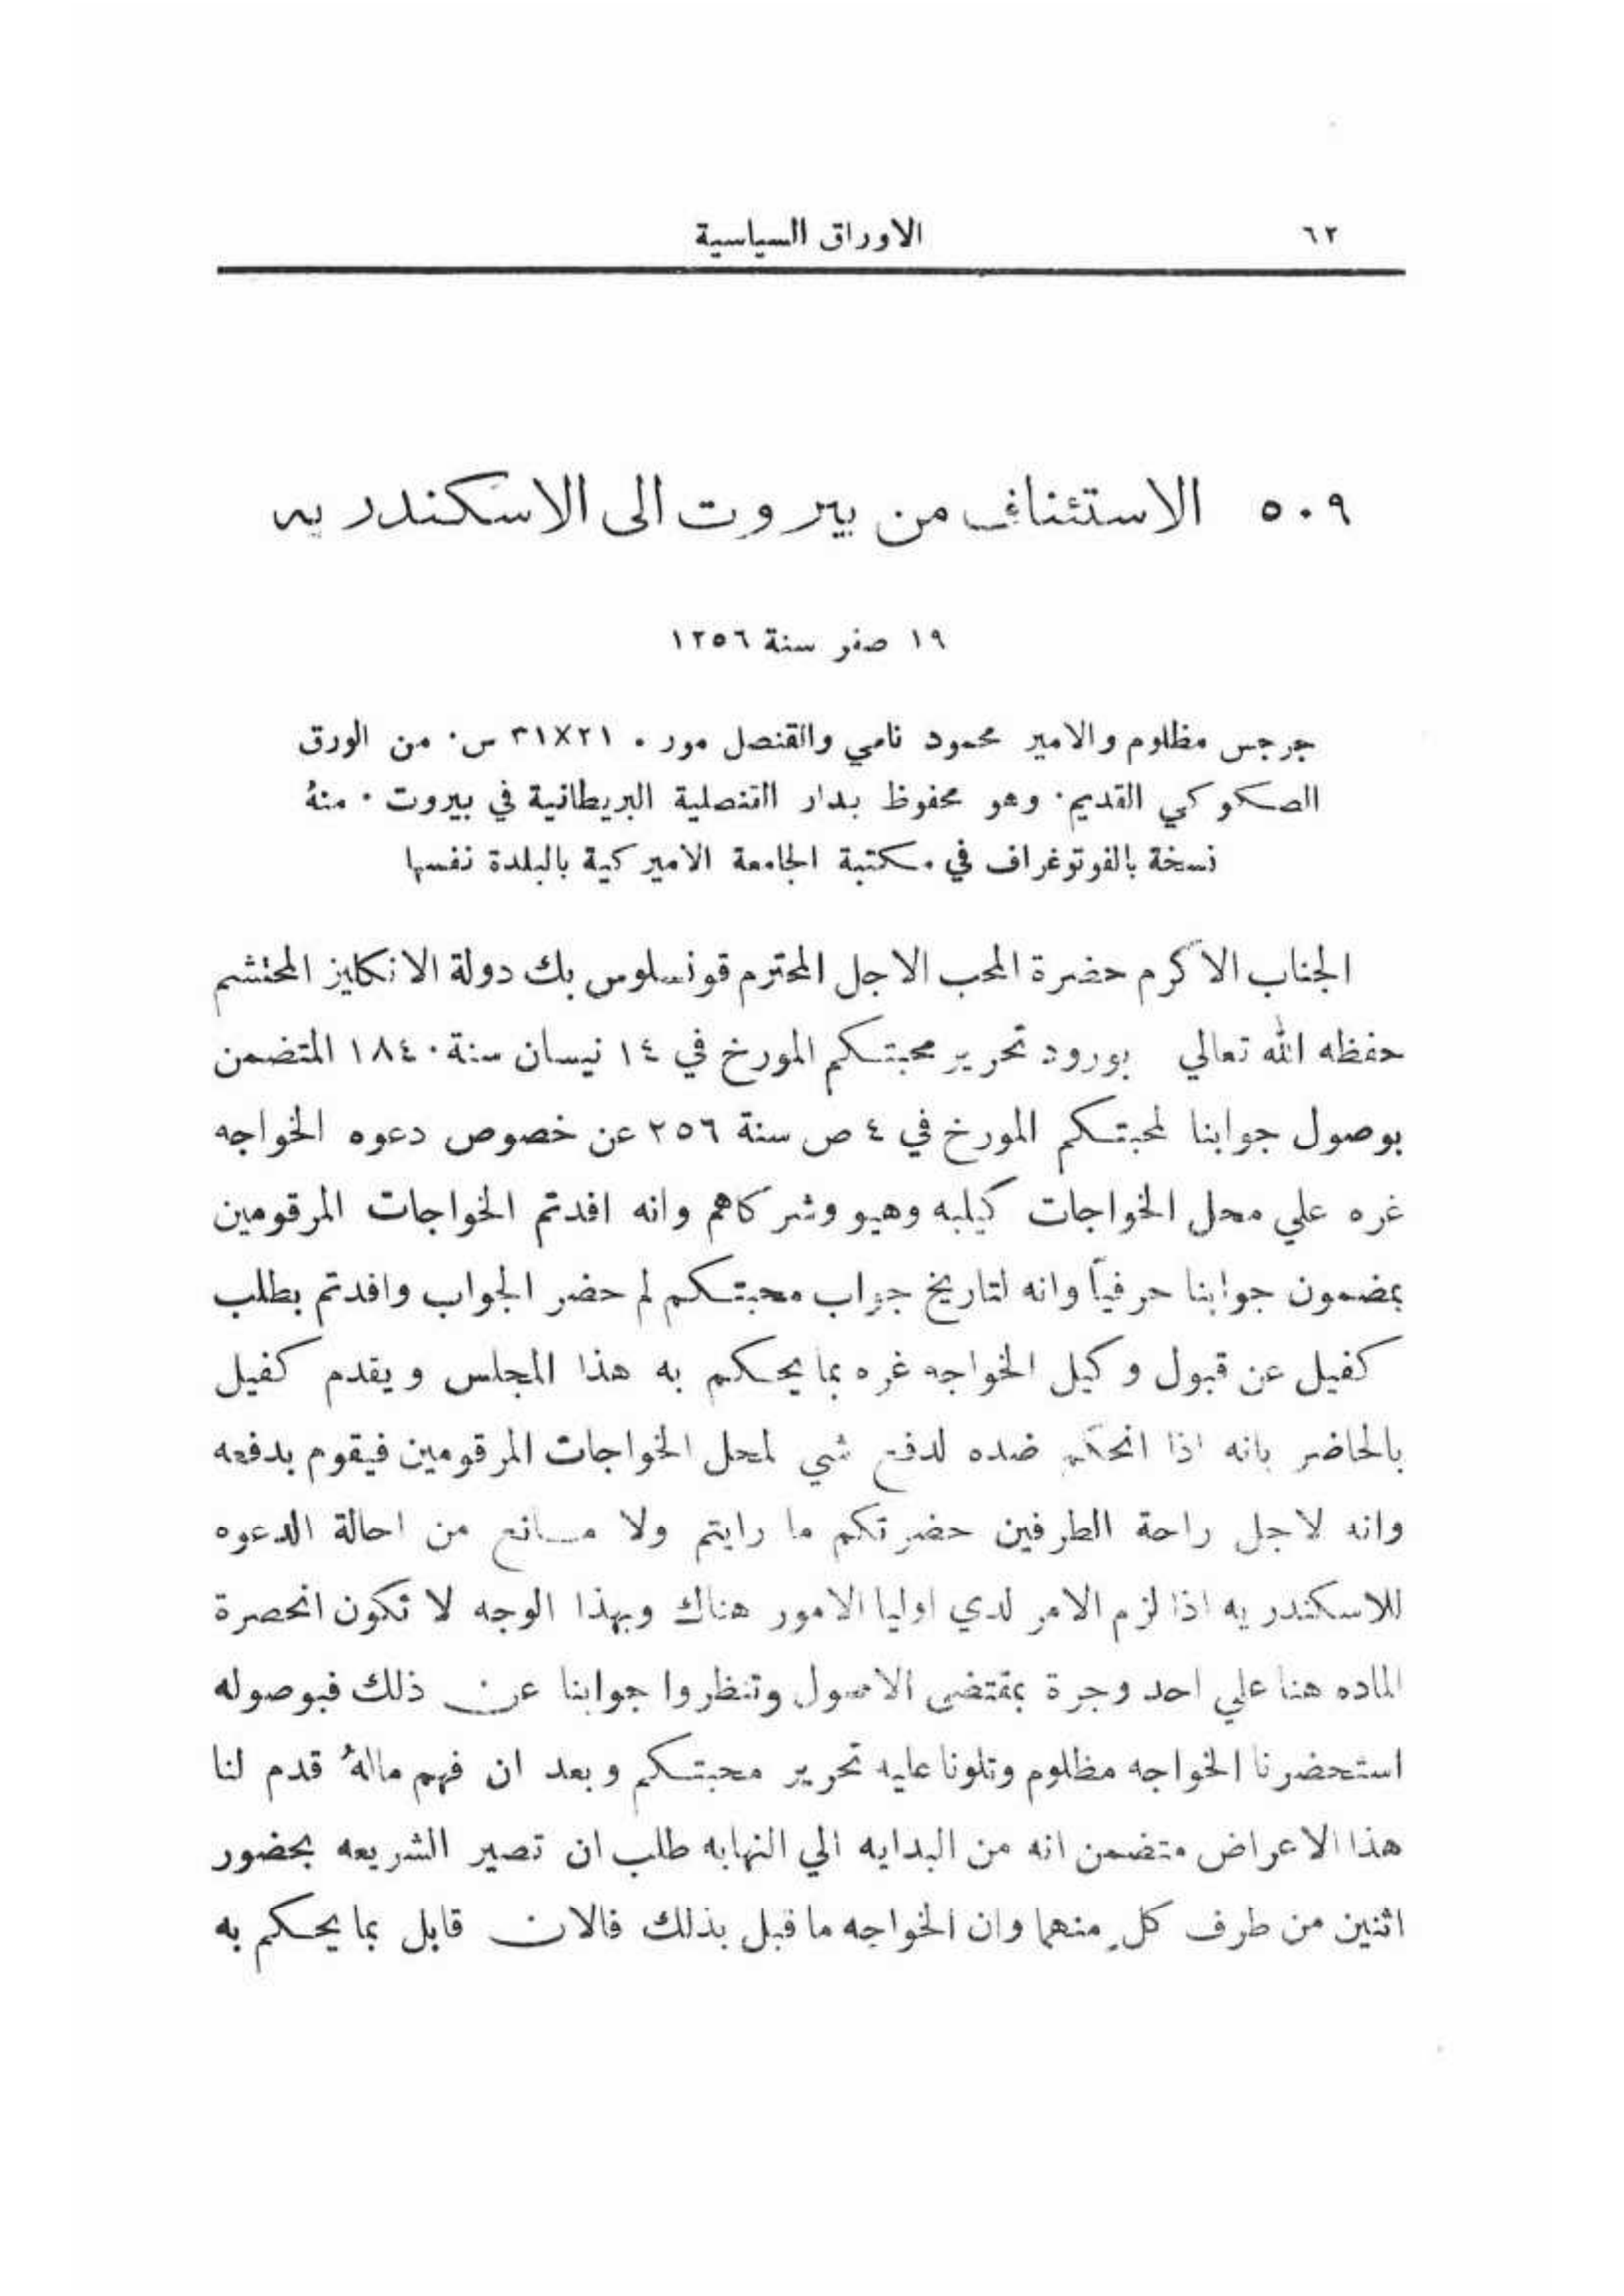 ٦٢ الاوراق السياسية
٥٠٩ الاستئناف من بيروت الى الاسكندريه
١٩ صفر سنة ١٢٥٦
جرجس مظلوم والامير محمود نامي والقنصل مور . ٢١×٣١ س . من الورق
الصكوكي القديم . وهو محفوظ بدار القنصلية البريطانية في بيروت . منهُ
نسخة بالفوتوغراف في مكتبة الجامعة الاميركية بالبلدة نفسها
الجناب الاكرم حضرة المحب الاجل المحترم قونسلوس بك دولة الانكليز المحتشم
حفظه الله تعالي بورود تحرير محبتكم المورخ في ١٤ نيسان سنة ١٨٤٠ المتضمن
بوصول جوابنا لمحبتكم المورخ في ٤ ص سنة ٢٥٦ عن خصوص دعوه الخواجه
غره علي محل الخواجات كيلبه وهيو وشركاهم وانه افدتم الخواجات المرقومين
بمضمون جوابنا حرفياً وانه لتاريخ جواب محبتكم لم حضر الجواب وافدتم بطلب
كفيل عن قبول وكيل الخواجه غره بما يحكم به هذا المجلس ويقدم كفيل
بالحاضر بانه اذا انحكم ضده لدفع شي لمحل الخواجات المرقومين فيقوم بدفعه
وانه لاجل راحة الطرفين حضرتكم ما رايتم ولا مانع من احالة الدعوه
للاسكندريه اذا لزم الامر لدي اوليا الامور هناك وبهذا الوجه لا تكون انحصرة
الماده هنا علي احد وجرة بمقتضى الاصول وتنظروا جوابنا عن ذلك فبوصوله
استحضرنا الخواجه مظلوم وتلونا عليه تحرير محبتكم وبعد ان فهم مالهُ قدم لنا
هذا الاعراض متضمن انه من البدايه الي النهايه طلب ان تصير الشريعه بحضور
اثنين من طرف كلٍ منهما وان الخواجه ما قبل بذلك فالان قابل بما يحكم به